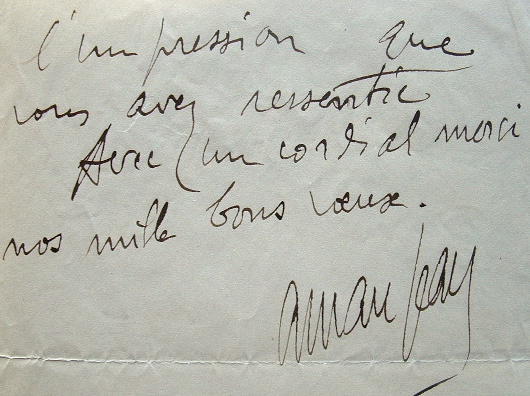 l'impression que
vous avez ressentie
Avec un cordial merci
nos mille bons vœux.
aman Jean